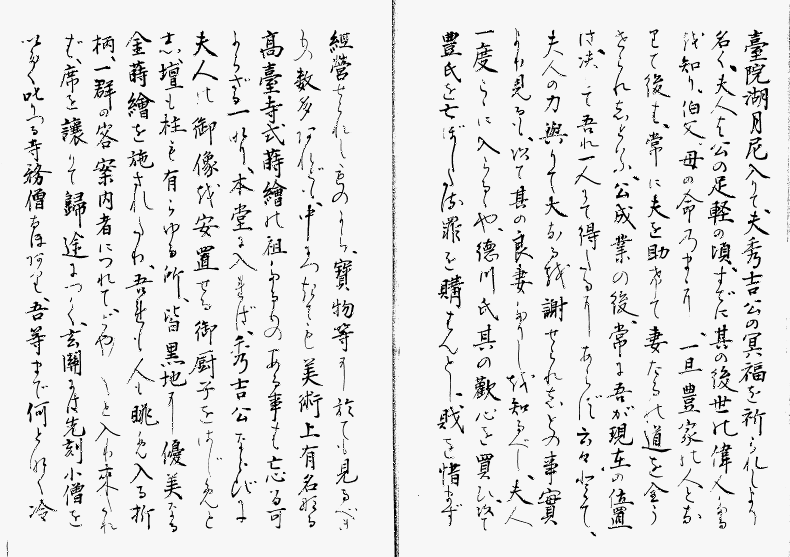 臺院湖月尼入りて、夫秀吉公の冥福を祈られしより
名く、夫人は公の足軽の頃、すでに其の後世の偉人なる
を知り、伯父母の命乃まゝり 一旦豊家の人となり
て後も、常に夫を助けて妻たるの道を全う
せられしとふ、公成業の後、常に吾が現在の位置
は決して吾れ一人にて得しにあらず云々とて、
夫人の力與りて大なるを謝せられしとの事實
より見るも、以て其の良妻なりしを知るべし、夫人
一度こゝに入らるゝや、徳川氏其の歡心を買ひ、以て
豊氏を亡ぼしゝ罪を購はんとし、賎を惜まず
經營せられしものから、寶物等に於ても見るべき
もの数多あれど、中につきても美術上有名なる
高臺寺式蒔繪の祖なるものある事も忘る可
からざる一なり、本堂に入れば、秀吉公ならびに
夫人の御像を安置せる御厨子をはじめと
し、壇も柱も有らゆる所、皆黒地に優美なる
金蒔繪を施されたり、吾れも人も眺め入る折
柄、一群の客案内者につれてどや／＼と入り来れ
ば、席を譲りて歸途につく、玄関には先刻小僧を
いたく叱りゐる寺務僧なほあり、吾等まで何となく冷